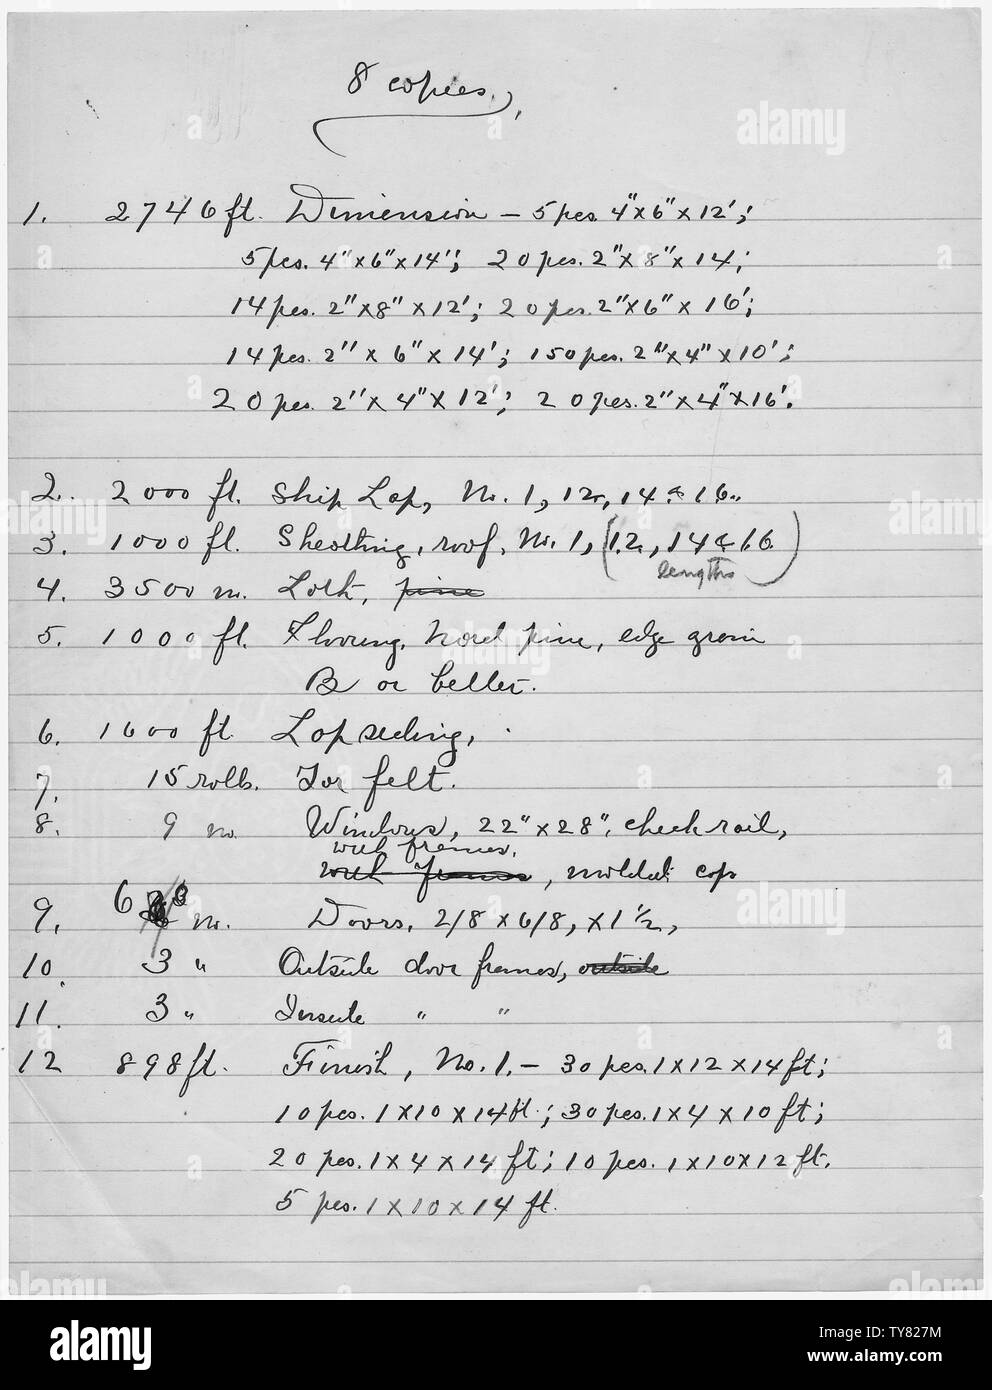 8 copies
1. 2746 ft. Dimension – 5 pcs. 4" x 6" x 12';
5 pcs. 4" x 6" x 14'; 20 pcs. 2" x 8" x 14;
14 pcs. 2" x 8" x 12'; 20 pcs. 2" x 6" x 16';
14 pcs. 2" x 6" x 14'; 150 pcs. 2" x 4" x 10';
20 pcs. 2" x 4" x 12'; 20 pcs. 2" x 4" x 16'.
2. 2000 ft. Ship Lap, No. 1, 12, 14 & 16.
3. 1000 ft. Sheathing, roof, No. 1, (12, 14 & 16
lengths)
4. 3500 no. Lath, pine
5. 1000 ft. Flooring, Nord pine, edge grain
B or better.
6. 1600 ft. Lap siding,
7. 15 rolls. Tar felt.
8. 9 no. Windows, 22" x 28", check rail,
with frames,
with frames, molded cap
9. 6 no. Doors, 2/8 x 6/8, x 1 1/2,
10. 3 " Outside door frames, outside
11. 3 " Inside " "
12 898 ft. Finish, No. 1. – 30 pcs. 1 x 12 x 14 ft;
10 pcs. 1 x 10 x 14 ft.; 30 pcs. 1 x 4 x 10 ft;
20 pcs. 1 x 4 x 14 ft; 10 pcs. 1 x 10 x 12 ft.
5 pcs. 1 x 10 x 14 ft.
alamy
Image ID: TY827M
www.alamy.com